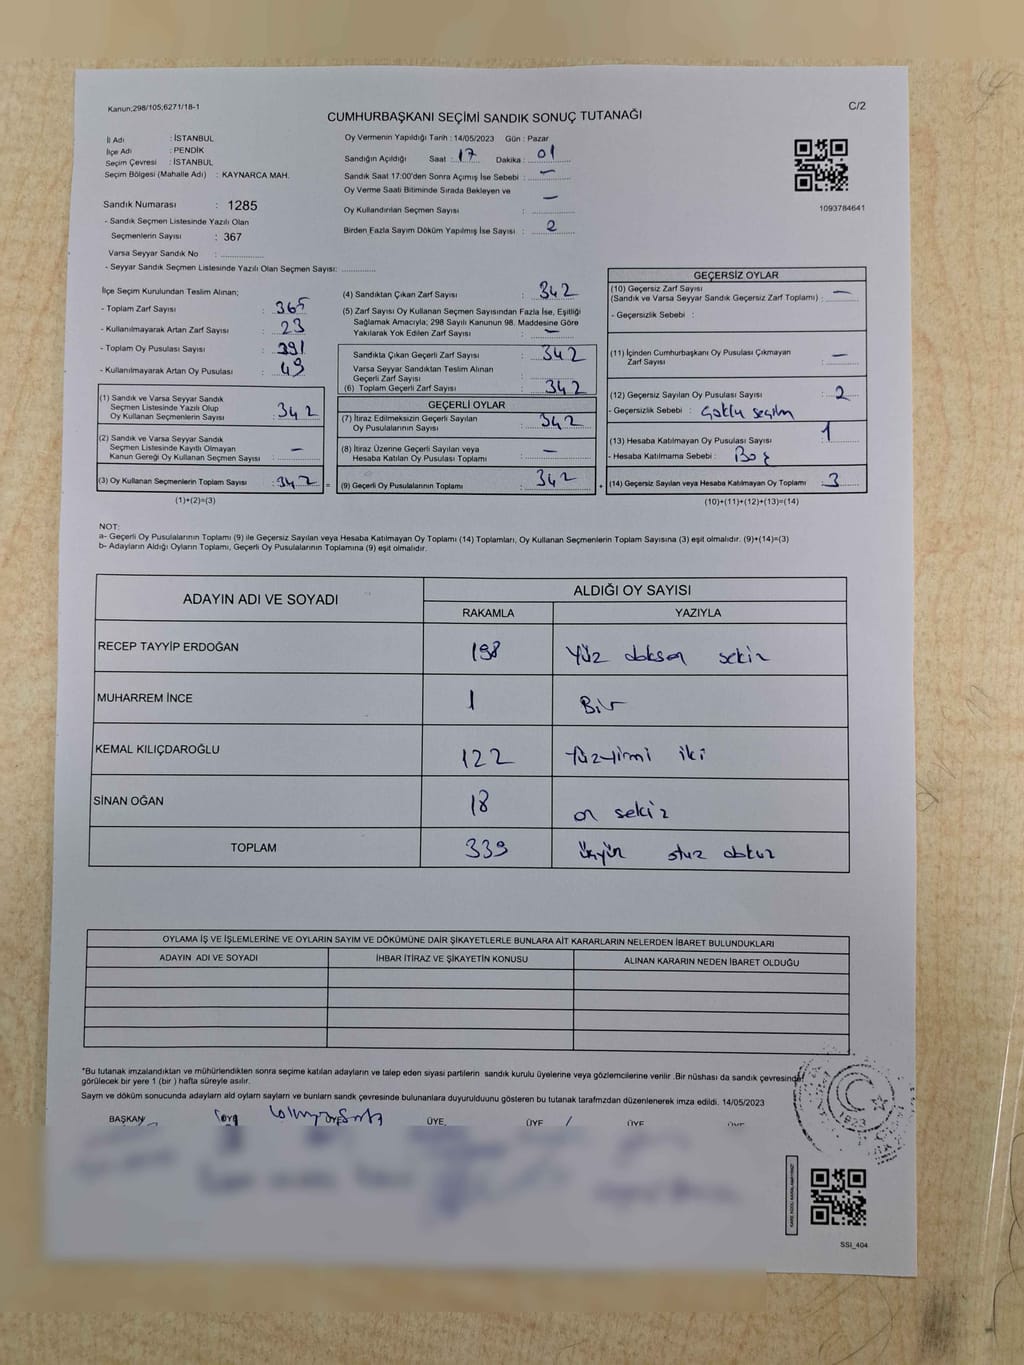 Kanun;298/105,6271/18-1
C/2
CUMHURBAŞKANI SEÇİMİ SANDIK SONUÇ TUTANAĞI
İl Adı : İSTANBUL
İlçe Adı : PENDİK
Seçim Çevresi : İSTANBUL
Seçim Bölgesi (Mahalle Adı) : KAYNARCA MAH.
Sandık Numarası : 1285
- Sandık Seçmen Listesinde Yazılı Olan
Seçmenlerin Sayısı : 367
Varsa Seyyar Sandık No :
- Seyyar Sandık Seçmen Listesinde Yazılı Olan Seçmen Sayısı:
Oy Vermenin Yapıldığı Tarih : 14/05/2023 Gün : Pazar
Sandığın Açıldığı Saat : 17 Dakika : 01
Sandık Saat 17:00'den Sonra Açımış İse Sebebi : —
Oy Verme Saati Bitiminde Sırada Bekleyen ve
Oy Kullandırılan Seçmen Sayısı : —
Birden Fazla Sayım Döküm Yapılmış İse Sayısı : 2
1093784641
İlçe Seçim Kurulundan Teslim Alınan;
- Toplam Zarf Sayısı : 365
- Kullanılmayarak Artan Zarf Sayısı : 23
- Toplam Oy Pusulası Sayısı : 391
- Kullanılmayarak Artan Oy Pusulası : 49
(1) Sandık ve Varsa Seyyar Sandık
Seçmen Listesinde Yazılı Olup
Oy Kullanan Seçmenlerin Sayısı : 342
(2) Sandık ve Varsa Seyyar Sandık
Seçmen Listesinde Kayıtlı Olmayan
Kanun Gereği Oy Kullanan Seçmen Sayısı : —
(3) Oy Kullanan Seçmenlerin Toplam Sayısı : 342 =
(1)+(2)=(3)
(4) Sandıktan Çıkan Zarf Sayısı : 342
(5) Zarf Sayısı Oy Kullanan Seçmen Sayısından Fazla İse, Eşitliği
Sağlamak Amacıyla; 298 Sayılı Kanunun 98. Maddesine Göre
Yakılarak Yok Edilen Zarf Sayısı : —
Sandıkta Çıkan Geçerli Zarf Sayısı : 342
Varsa Seyyar Sandıktan Teslim Alınan
Geçerli Zarf Sayısı :
(6) Toplam Geçerli Zarf Sayısı : 342
GEÇERLİ OYLAR
(7) İtiraz Edilmeksizin Geçerli Sayılan
Oy Pusulalarının Sayısı : 342
(8) İtiraz Üzerine Geçerli Sayılan veya
Hesaba Katılan Oy Pusulası Toplamı : —
(9) Geçerli Oy Pusulalarının Toplamı : 342 +
GEÇERSİZ OYLAR
(10) Geçersiz Zarf Sayısı
(Sandık ve Varsa Seyyar Sandık Geçersiz Zarf Toplamı) : —
- Geçersizlik Sebebi :
(11) İçinden Cumhurbaşkanı Oy Pusulası Çıkmayan
Zarf Sayısı : —
(12) Geçersiz Sayılan Oy Pusulası Sayısı : 2
- Geçersizlik Sebebi : Çoklu seçim
(13) Hesaba Katılmayan Oy Pusulası Sayısı : 1
- Hesaba Katılmama Sebebi : Boş
(14) Geçersiz Sayılan veya Hesaba Katılmayan Oy Toplamı : 3
(10)+(11)+(12)+(13)=(14)
NOT:
a- Geçerli Oy Pusulalarının Toplamı (9) ile Geçersiz Sayılan veya Hesaba Katılmayan Oy Toplamı (14) Toplamları, Oy Kullanan Seçmenlerin Toplam Sayısına (3) eşit olmalıdır. (9)+(14)=(3)
b- Adayların Aldığı Oyların Toplamı, Geçerli Oy Pusulalarının Toplamına (9) eşit olmalıdır.
ADAYIN ADI VE SOYADI
ALDIĞI OY SAYISI
RAKAMLA YAZIYLA
RECEP TAYYİP ERDOĞAN 198 Yüz doksan sekiz
MUHARREM İNCE 1 Bir
KEMAL KILIÇDAROĞLU 122 Yüzyirmi iki
SİNAN OĞAN 18 on sekiz
TOPLAM 339 üçyüz otuz dokuz
OYLAMA İŞ VE İŞLEMLERİNE VE OYLARIN SAYIM VE DÖKÜMÜNE DAİR ŞİKAYETLERLE BUNLARA AİT KARARLARIN NELERDEN İBARET BULUNDUKLARI
ADAYIN ADI VE SOYADI İHBAR İTİRAZ VE ŞİKAYETİN KONUSU ALINAN KARARIN NEDEN İBARET OLDUĞU
*Bu tutanak imzalandıktan ve mühürlendikten sonra seçime katılan adayların ve talep eden siyasi partilerin sandık kurulu üyelerine veya gözlemcilerine verilir .Bir nüshası da sandık çevresinde
görülecek bir yere 1 (bir ) hafta süreyle asılır.
Sayım ve döküm sonucunda adayların ald oyların sayların ve bunların sandık çevresinde bulunanlara duyurulduunu gösteren bu tutanak tarafmzdan düzenlenerek imza edildi. 14/05/2023
BAŞKAN ÜYE ÜYE ÜYE ÜYE
1923
SSI_404